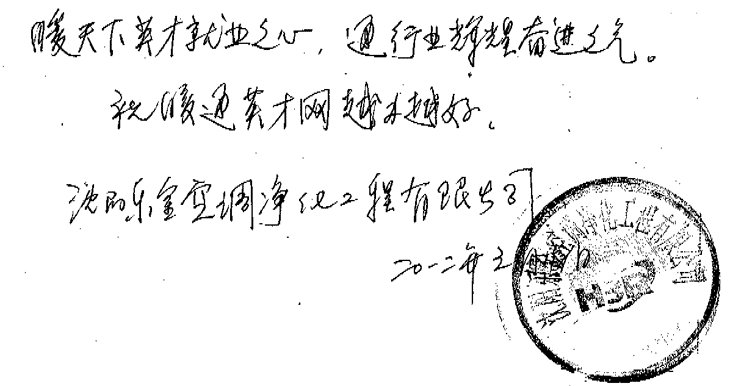 暖天下英才就业之心，通行业辉煌奋进之气。
祝暖通英才网越来越好。
空调净化工程有限公司
二〇一二年
空调净化工程有限公司